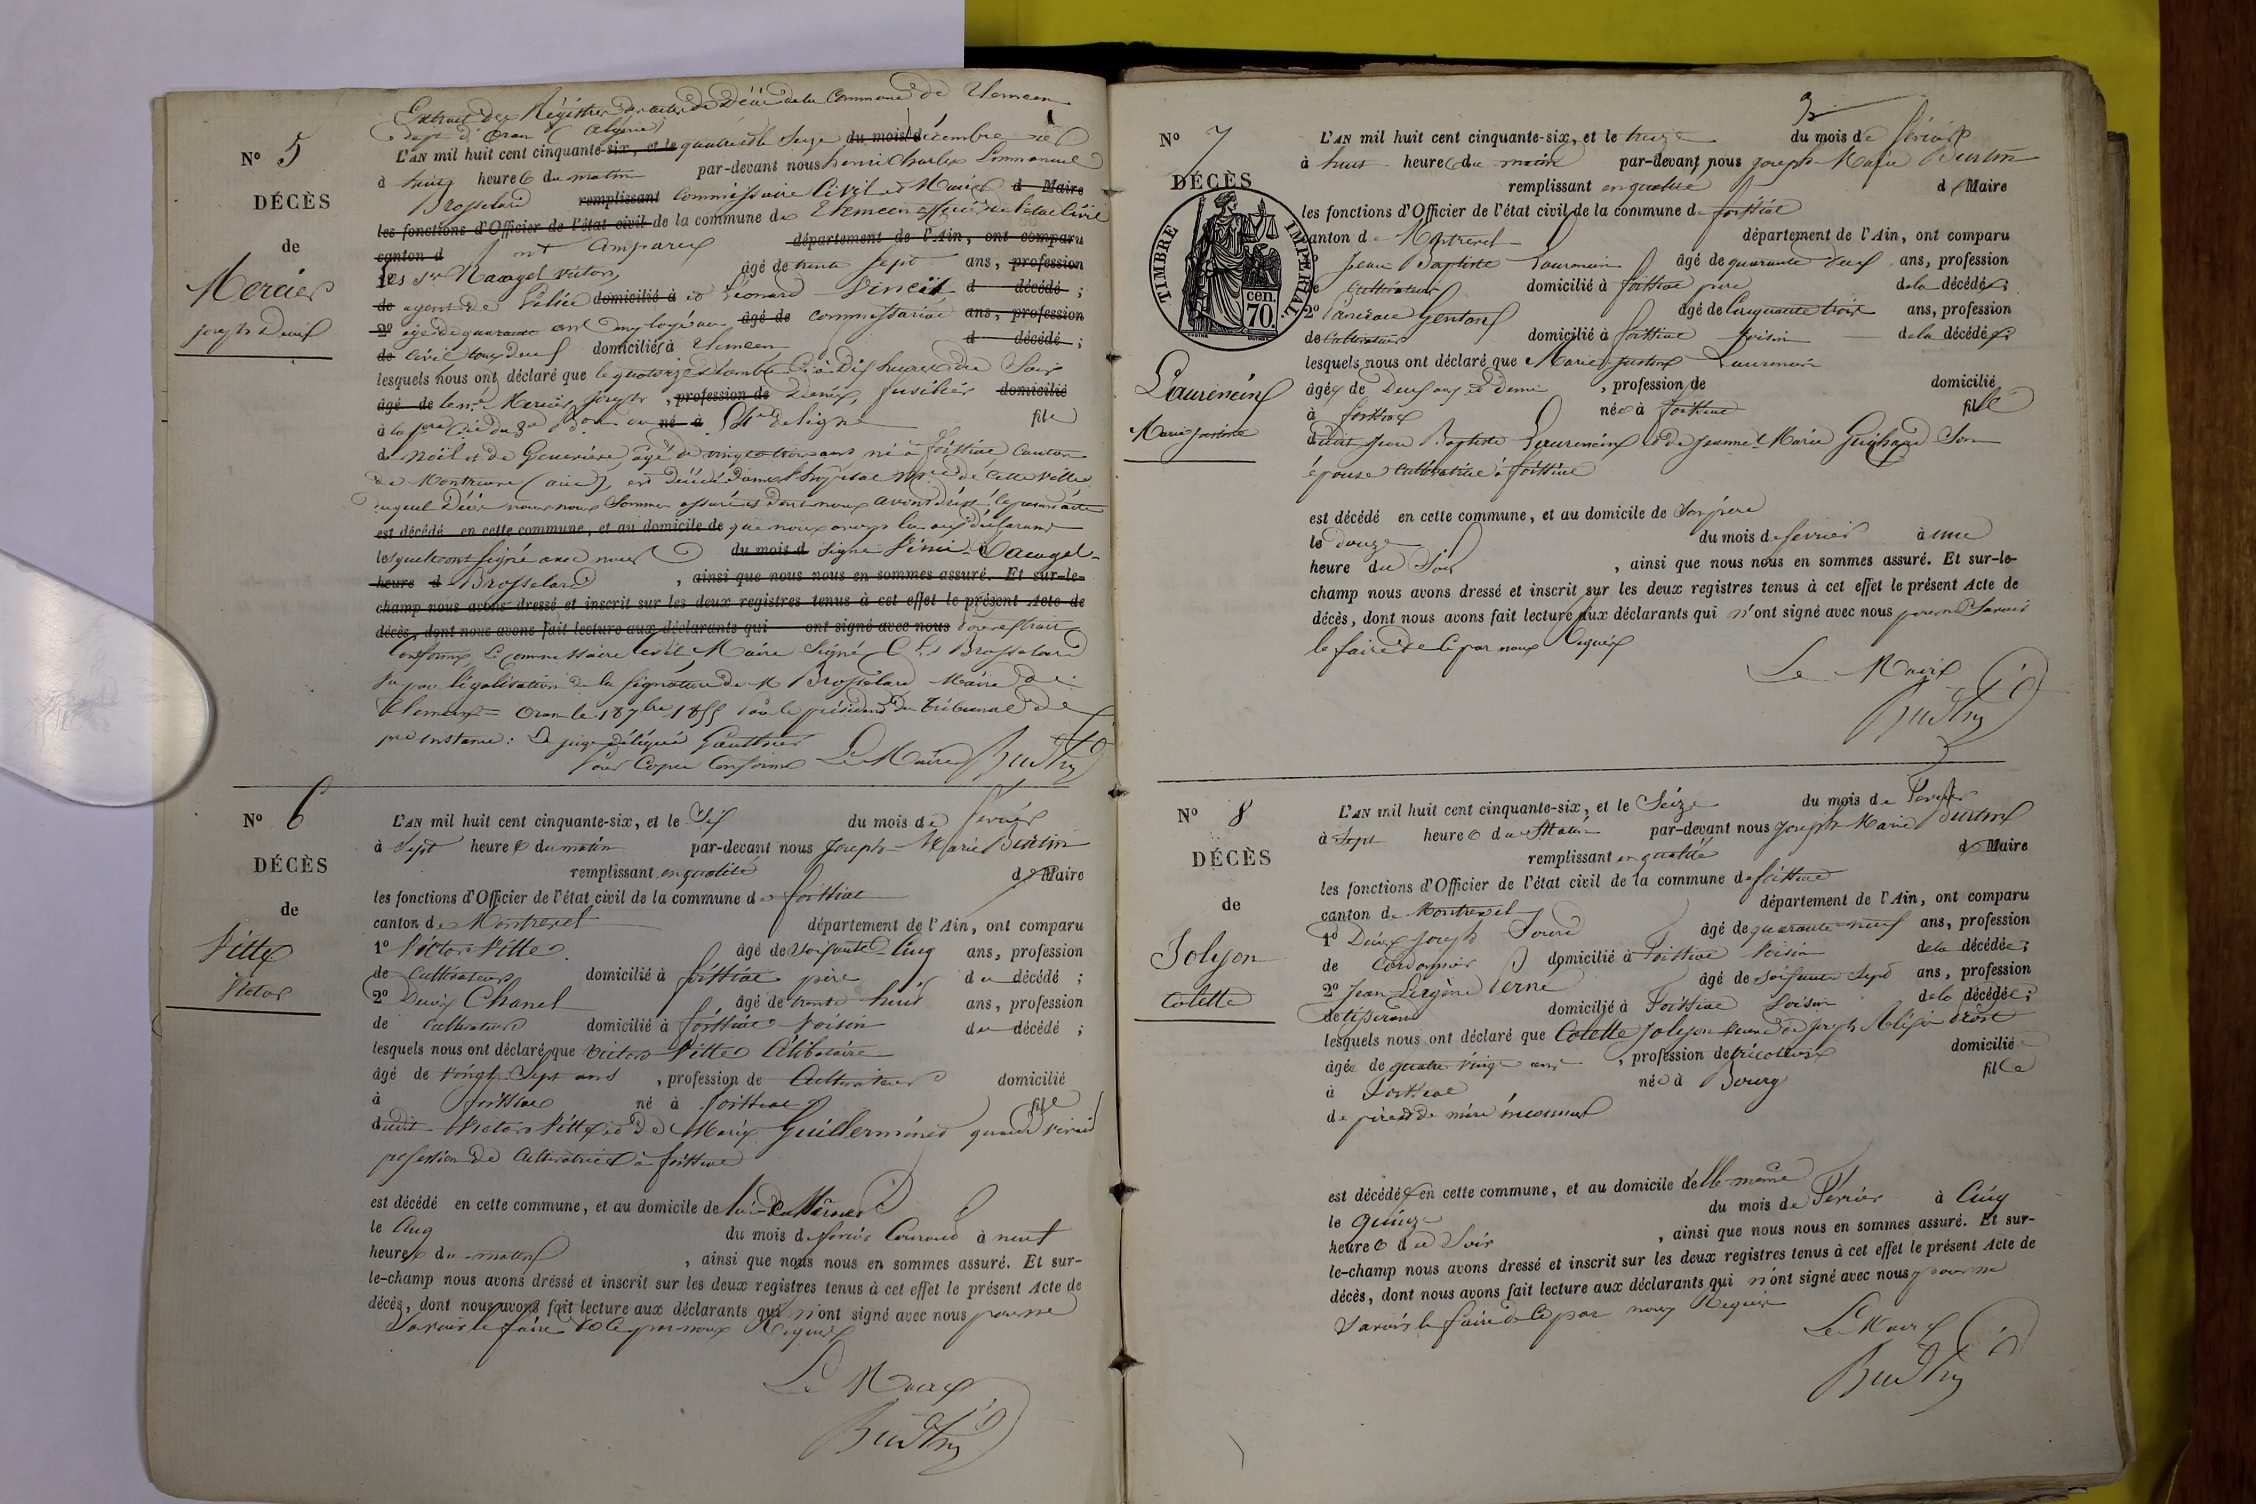 Extrait des Régistres des actes de Décès de la Commune de Tlemcen
dept d'Oran (Algérie)
N° 5
DÉCÈS
de
Mercier
joseph Denis
L'AN mil huit cent cinquante-six, et le quatre le Seize du mois décembre
à huit heures du matin par-devant nous henri Charles Emmanuel
Brosselard remplissant Commissaire Civil et Maire d Maire
les fonctions d'Officier de l'état civil de la commune de Tlemcen officier de l'état Civil
canton d ont Comparu département de l'Ain, ont comparu
Les Srs victor, âgé de trente sept ans, profession
de agent de Police domicilié à et Léonard d décédé ;
2° âgé de quarante ans employé au âgé de commissariat ans, profession
de civil tous deux domiciliés à Tlemcen d décédé ;
lesquels nous ont déclaré que le quatorze à Dix heures du Soir
âgé de le né Mercier joseph, profession de Denis, fusilier domicilié
à la 1ere Cie du 3e né à de ligne fils
de Noël et de Genevière, âgé de vingt trois ans né à foissiat Canton
de Montrevel (ain), est Décédé Dans l'hopital de Cette ville
duquel Décès nous nous Sommes assurés et Dont nous avons dressé le présent acte
est décédé en cette commune, et au domicile de que nous avons lu aux déclarants
lesquels ont signé avec nous du mois d signé
heure d Brosselard, ainsi que nous nous en sommes assuré. Et sur-le-
champ nous avons dressé et inscrit sur les deux registres tenus à cet effet le présent Acte de
décès, dont nous avons fait lecture aux déclarants qui ont signé avec nous pour extrait
Conforme, Le Commissaire Civil, Maire Signé Chs Brosselard
Vu pour légalisation de la signature de M Brosselard Maire de
Tlemcen = Oran le 18 7bre 1855 Pour le président du Tribunal de
pre instance : Le juge délégué Gauthier
Pour Copie Conforme Le Maire
N° 6
DÉCÈS
de
Vitte
Victor
L'AN mil huit cent cinquante-six, et le Six du mois de février
à Sept heures du matin par-devant nous joseph Marie Burtin
remplissant en qualité de Maire
les fonctions d'Officier de l'état civil de la commune de foissiat
canton de Montrevel département de l'Ain, ont comparu
1° Victor Vitte âgé de soixante Cinq ans, profession
de Cultivateur domicilié à foissiat père du décédé ;
2° Denis Chanel âgé de trente huit ans, profession
de Cultivateur domicilié à foissiat voisin du décédé ;
lesquels nous ont déclaré que victor Vitte Célibataire
âgé de vingt Sept ans, profession de Cultivateur domicilié
à foissiat né à foissiat fils
dudit Victor Vitte et de Marie Guillerminet quand vivait
profession de Cultivatrice à foissiat
est décédé en cette commune, et au domicile de lui-même
le Cinq du mois de février Courant à neuf
heures du matin, ainsi que nous nous en sommes assuré. Et sur-
le-champ nous avons dressé et inscrit sur les deux registres tenus à cet effet le présent Acte de
décès, dont nous avons fait lecture aux déclarants qui n'ont signé avec nous pour ne
Savoir le faire de Ce par nous Requis
Le Maire
3
N° 7
DÉCÈS
TIMBRE IMPÉRIAL
70 cen.
Laurencin
Marie justine
L'AN mil huit cent cinquante-six, et le treize du mois de février
à huit heures du matin par-devant nous joseph Marie Burtin
remplissant en qualité de Maire
les fonctions d'Officier de l'état civil de la commune de foissiat
canton de Montrevel département de l'Ain, ont comparu
Jean Baptiste Laurencin âgé de quarante deux ans, profession
de Cultivateur domicilié à foissiat père de la décédée ;
2° Pancrace Genton âgé de Cinquante trois ans, profession
de Cultivateur domicilié à foissiat voisin de la décédée ;
lesquels nous ont déclaré que Marie justine Laurencin
âgée de Deux ans et Demi, profession de domicilié
à foissiat née à foissiat fille
dudit Jean Baptiste Laurencin et de jeanne Marie Guichard Son
épouse Cultivatrice à foissiat
est décédé en cette commune, et au domicile de Son père
le douze du mois de fevrier à une
heure du Soir, ainsi que nous nous en sommes assuré. Et sur-le-
champ nous avons dressé et inscrit sur les deux registres tenus à cet effet le présent Acte de
décès, dont nous avons fait lecture aux déclarants qui n'ont signé avec nous pour ne Savoir
le faire de Ce par nous Requis
Le Maire
N° 8
DÉCÈS
de
Jolyon
Colette
L'AN mil huit cent cinquante-six, et le Seize du mois de Fevrier
à Sept heures du Matin par-devant nous Joseph Marie Burtin
remplissant en qualité de Maire
les fonctions d'Officier de l'état civil de la commune de foissiat
canton de Montrevel département de l'Ain, ont comparu
1° Denis joseph âgé de quarante neuf ans, profession
de Cordonnier domicilié à Foissiat Voisin de la décédée ;
2° Jean âgé de soixante Sept ans, profession
de tisserand domicilié à Foissiat Voisin de la décédée ;
lesquels nous ont déclaré que Colette Jolyon veuve de joseph
âgée de quatre vingt ans, profession de tricoteuse domicilié
à Foissiat née à Bourg fille
de père et de mère inconnus
est décédée en cette commune, et au domicile d'elle-même
le Quinze du mois de Fevrier à Cinq
heures du Soir, ainsi que nous nous en sommes assuré. Et sur-
le-champ nous avons dressé et inscrit sur les deux registres tenus à cet effet le présent Acte de
décès, dont nous avons fait lecture aux déclarants qui n'ont signé avec nous pour ne
Savoir le faire de Ce par nous Requis
Le Maire